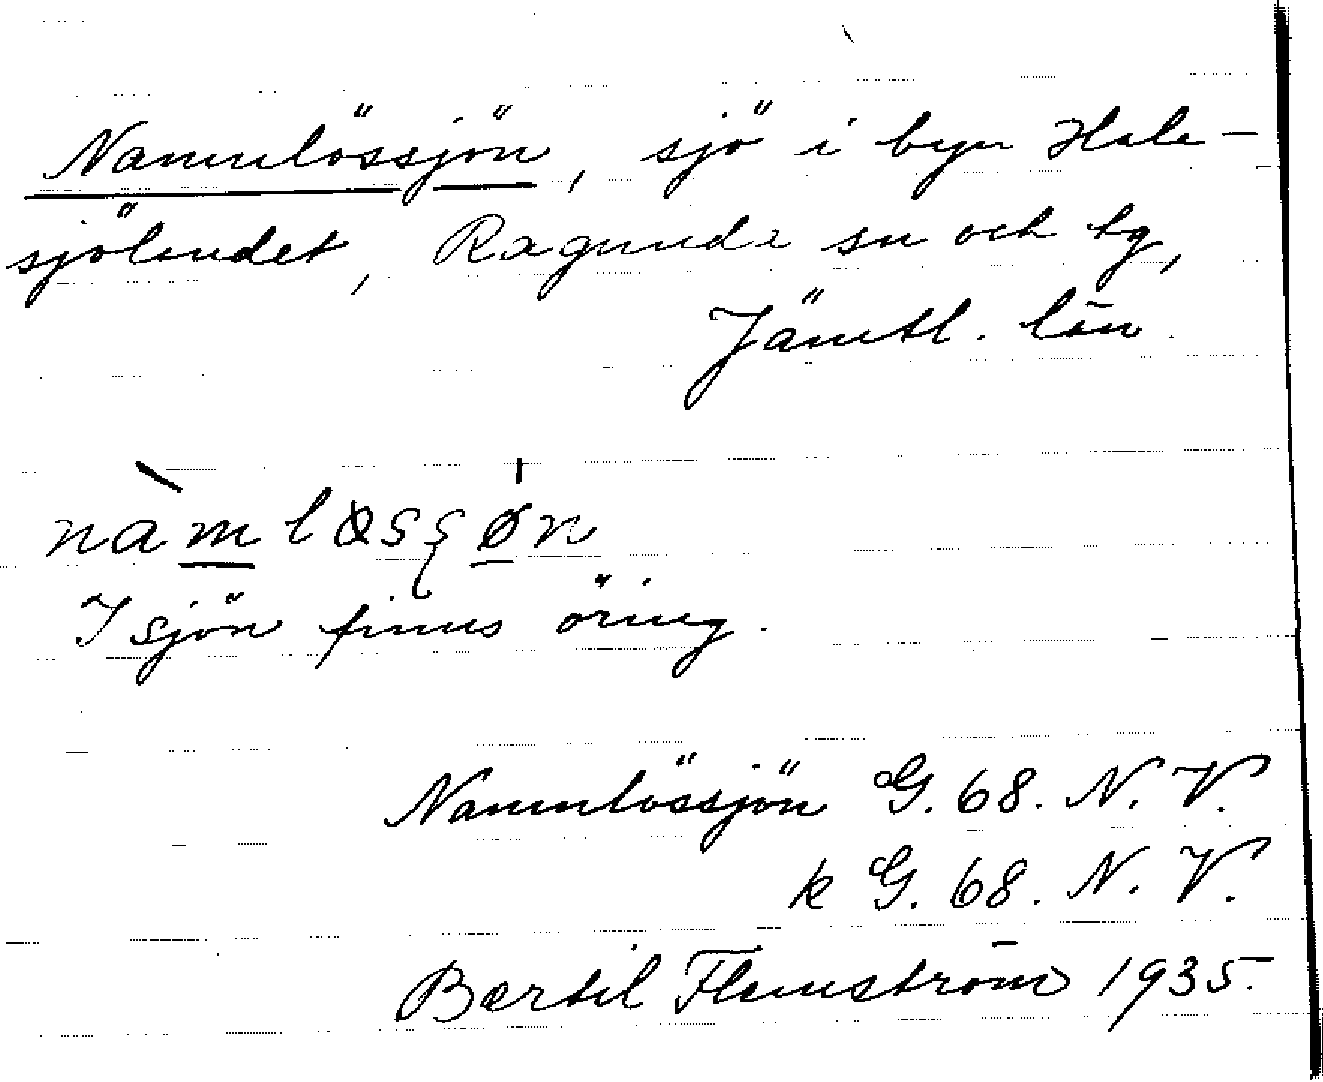 Namnlössjön, sjö i byn Hale-
sjölandet, Ragunda sn och tg,
Jämtl. län.
nàmløsʂøn
I sjön finns öring.
Namnlössjön G. 68. N. V.
k G. 68. N. V.
Bertil Flemström 1935.